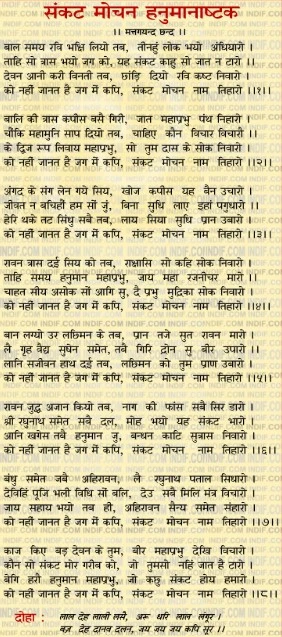 संकट मोचन हनुमानाष्टक
।। मत्तगयन्द छन्द ।।
बाल समय रवि भक्षि लियो तब, तीनहुं लोक भयो अंधियारो ।
ताहि सो त्रास भयो जग को, यह संकट काहु सो जात न टारो ।
देवन आनी करी विनती तब, छांड़ि दियो रवि कष्ट निवारो ।
को नहीं जानत है जग में कपि, संकट मोचन नाम तिहारो ।।१।।
बालि की त्रास कपीस बसै गिरी, जात महाप्रभु पंथ निहारो ।
चौंकि महामुनि साप दियो तब, चाहिए कौन विचार विचारो ।
के द्विज रूप लिवाय महाप्रभु, सो तुम दास के सोक निवारो ।
को नहीं जानत है जग में कपि, संकट मोचन नाम तिहारो ।।२।।
अंगद के संग लेन गये सिय, खोज कपीस यह बैन उचारो ।
जीवत न बचिहौं हम सों जु, बिना सुधि लाए इहां पगुधारो ।
हेरि थके तट सिंधु सबै तब, लाय सिया सुधि प्रान उबारो ।
को नहीं जानत है जग में कपि, संकट मोचन नाम तिहारो ।।३।।
रावन त्रास दई सिय को तब, राक्षसि सो कहि सोक निवारो ।
ताहि समय हनुमान महाप्रभु, जाय महा रजनीचर मारो ।
चाहत सीय असोक सों आगि सु, दै प्रभु मुद्रिका सोक निवारो ।
को नहीं जानत है जग में कपि, संकट मोचन नाम तिहारो ।।४।।
बान लग्यो उर लछिमन के तब, प्रान तजे सुत रावन मारो ।
लै गृह वैद्य सुषेन समेत, तबै गिरि द्रोन सु बीर उपारो ।।
लानि सजीवन हाथ दई तब, लछिमन को तुम प्राण उबारो ।
को नहीं जानत है जग में कपि, संकट मोचन नाम तिहारो ।।५।।
रावन जुद्ध अजान कियो तब, नाग की फांस सबै सिर डारो ।
श्री रघुनाथ समेत सबै दल, मोह भयो यह संकट भारो ।
आनि खगेस तबै हनुमान जु, बन्धन काटि सुत्रास निवारो ।
को नहीं जानत है जग में कपि, संकट मोचन नाम तिहारो ।।६।।
बंधु समेत जबै अहिरावन, लै रघुनाथ पताल सिधारो ।
देविहिं पूजि भली विधि सों बलि, देउ सबै मिलि मंत्र विचारो ।
जाय सहाय भयो तब ही, अहिरावन सैन्य समेत संहारो ।
को नहीं जानत है जग में कपि, संकट मोचन नाम तिहारो ।।७।।
काज किए बड़ देवन के तुम, बीर महाप्रभु देखि विचारो ।
कौन सो संकट मोर गरीब को, जो तुमसो नहिं जात है टारो ।
बेगि हरौ हनुमान महाप्रभु, जो कछु संकट होय हमारो ।
को नहीं जानत है जग में कपि, संकट मोचन नाम तिहारो ।।८।।
दोहा : लाल देह लाली लसै, अरू धरि लाल लंगुर ।
बज्र देह दानव दलन, जय जय जय कपि सूर ।।